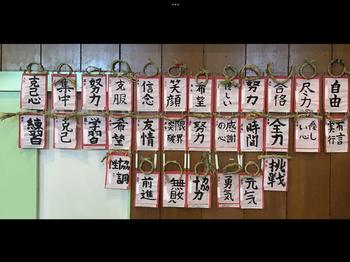 克己心
集中
努力
克服
信念
笑顔
希望
優しい
努力
合格
尽力
自由
練習
克己
学習
希望
友情
限界突破
努力
感謝の心
時間
全力
優しい心
有言実行
協調性
前進
無敗
協力
勇気
元気
挑戦